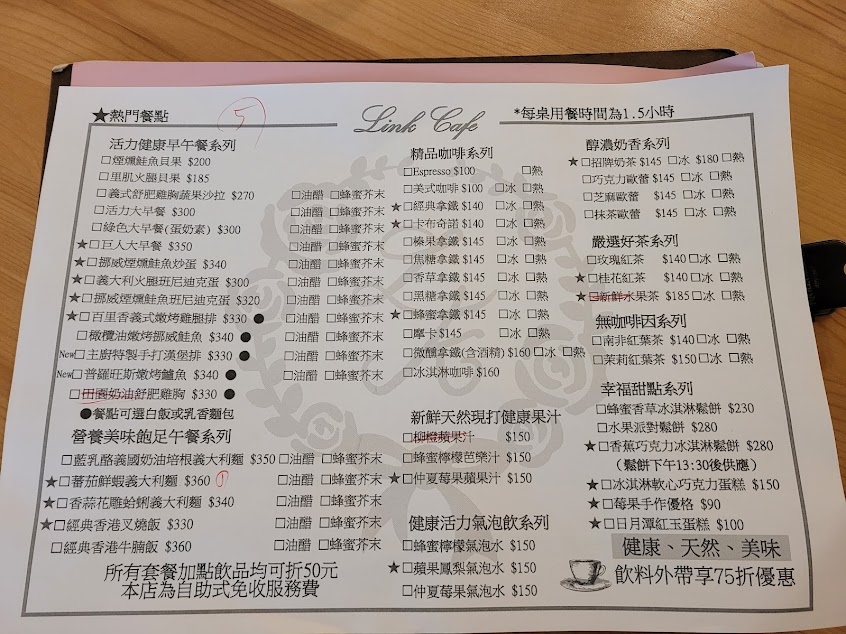 ★熱門餐點
5
Link Cafe
*每桌用餐時間為1.5小時
活力健康早午餐系列
□煙燻鮭魚貝果 $200
□里肌火腿貝果 $185
□義式舒肥雞胸蔬果沙拉 $270 □油醋 □蜂蜜芥末
□活力大早餐 $300 □油醋 □蜂蜜芥末
□綠色大早餐(蛋奶素) $300 □油醋 □蜂蜜芥末
★□巨人大早餐 $350 □油醋 □蜂蜜芥末
★□挪威煙燻鮭魚炒蛋 $340 □油醋 □蜂蜜芥末
★□義大利火腿班尼迪克蛋 $300 □油醋 □蜂蜜芥末
★□挪威煙燻鮭魚班尼迪克蛋 $320 □油醋 □蜂蜜芥末
★□百里香義式嫩烤雞腿排 $330 ● □油醋 □蜂蜜芥末
□橄欖油嫩烤挪威鮭魚 $340 ● □油醋 □蜂蜜芥末
New□主廚特製手打漢堡排 $330 ● □油醋 □蜂蜜芥末
New□普羅旺斯嫩烤鱸魚 $340 ● □油醋 □蜂蜜芥末
□田園奶油舒肥雞胸 $330 ● □油醋 □蜂蜜芥末
●餐點可選白飯或乳香麵包
營養美味飽足午餐系列
□藍乳酪義國奶油培根義大利麵 $350 □油醋 □蜂蜜芥末
★□蕃茄鮮蝦義大利麵 $360 □油醋 □蜂蜜芥末
★□香蒜花雕蛤蜊義大利麵 $340 □油醋 □蜂蜜芥末
★□經典香港叉燒飯 $330 □油醋 □蜂蜜芥末
□經典香港牛腩飯 $360 □油醋 □蜂蜜芥末
所有套餐加點飲品均可折50元
本店為自助式免收服務費
精品咖啡系列
□Espresso $100 □熱
□美式咖啡 $100 □冰 □熱
★□經典拿鐵 $140 □冰 □熱
★□卡布奇諾 $140 □冰 □熱
□榛果拿鐵 $145 □冰 □熱
□焦糖拿鐵 $145 □冰 □熱
□香草拿鐵 $145 □冰 □熱
□黑糖拿鐵 $145 □冰 □熱
★□蜂蜜拿鐵 $145 □冰 □熱
□摩卡 $145 □冰 □熱
□微醺拿鐵(含酒精) $160 □冰 □熱
□冰淇淋咖啡 $160
新鮮天然現打健康果汁
□柳橙蘋果汁 $150
□蜂蜜檸檬芭樂汁 $150
★□仲夏莓果蘋果汁 $150
健康活力氣泡飲系列
□蜂蜜檸檬氣泡水 $150
★□蘋果鳳梨氣泡水 $150
□仲夏莓果氣泡水 $150
醇濃奶香系列
★□招牌奶茶 $145 □冰 $180 □熱
□巧克力歐蕾 $145 □冰 □熱
□芝麻歐蕾 $145 □冰 □熱
□抹茶歐蕾 $145 □冰 □熱
嚴選好茶系列
□玫瑰紅茶 $140 □冰 □熱
★□桂花紅茶 $140 □冰 □熱
★□新鮮水果茶 $185 □冰 □熱
無咖啡因系列
□南非紅葉茶 $140 □冰 □熱
□茉莉紅葉茶 $150 □冰 □熱
幸福甜點系列
□蜂蜜香草冰淇淋鬆餅 $230
□水果派對鬆餅 $280
★□香蕉巧克力冰淇淋鬆餅 $280
(鬆餅下午13:30後供應)
★□冰淇淋軟心巧克力蛋糕 $150
★□莓果手作優格 $90
★□日月潭紅玉蛋糕 $100
健康、天然、美味
飲料外帶享75折優惠